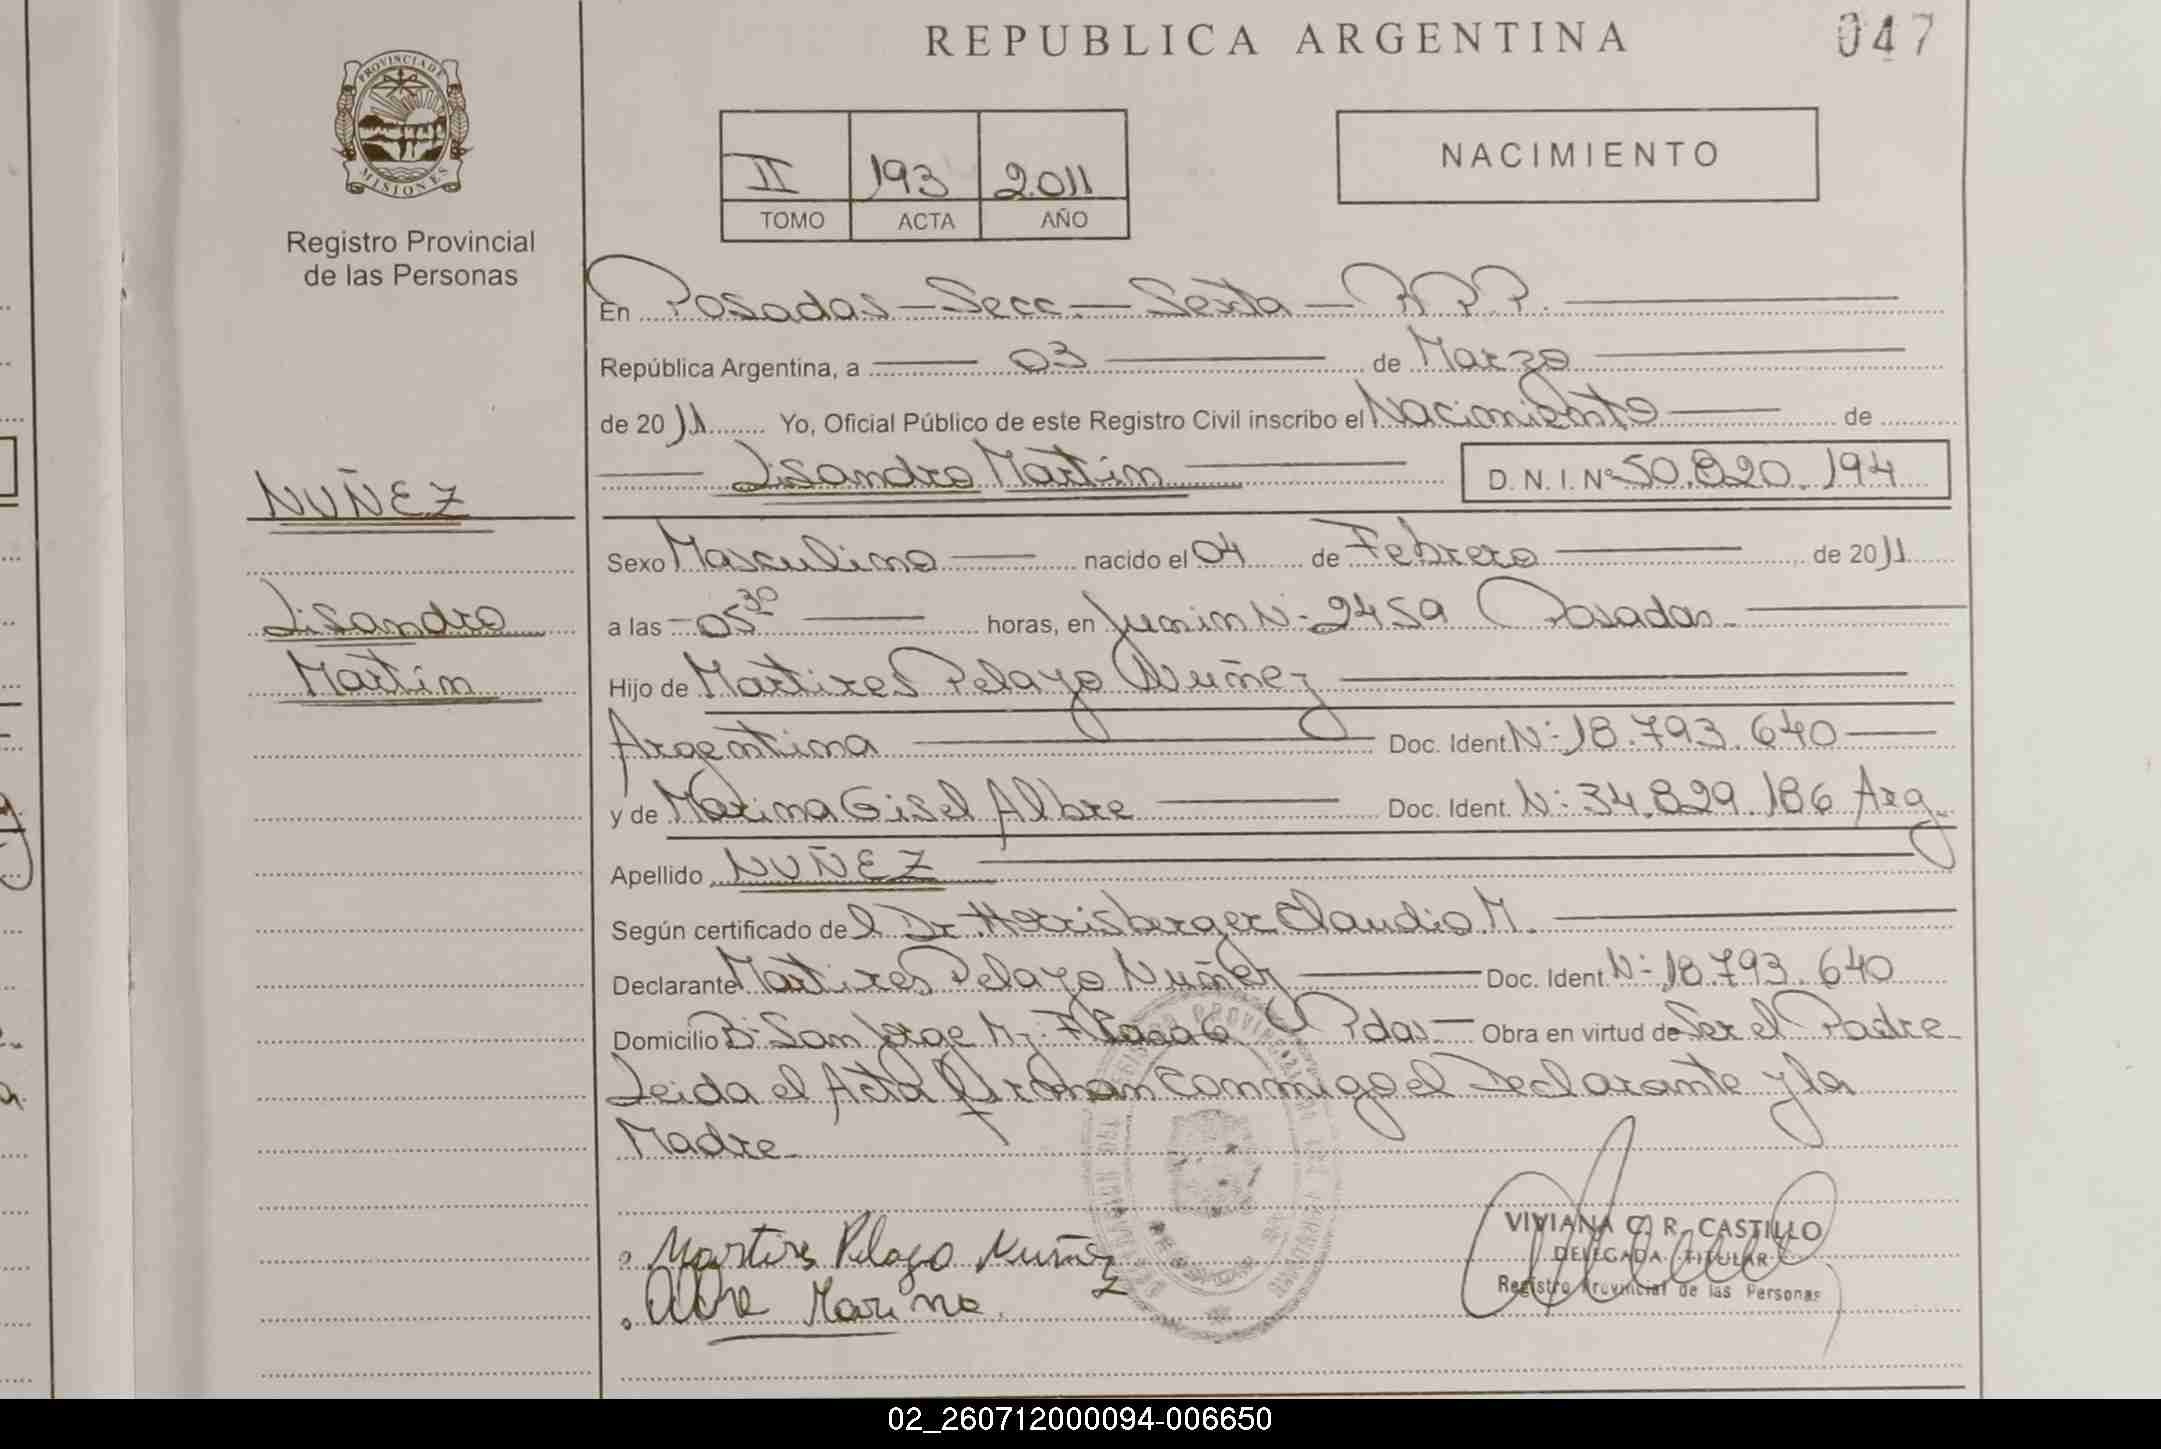 REPUBLICA ARGENTINA
047
PROVINCIA DE
MISIONES
Registro Provincial
de las Personas
II 193 2011
TOMO ACTA AÑO
NACIMIENTO
En Posadas - Secc. - Sexta - R.P.P.
República Argentina, a 03 de Marzo
de 2011 Yo, Oficial Público de este Registro Civil inscribo el Nacimiento de
Lisandro Martin D. N. I. Nº 50.820.194
NUÑEZ
Lisandro
Martin
Sexo Masculino nacido el 04 de Febrero de 2011
a las 05 30 horas, en Junin Nº 2459 Posadas
Hijo de Martires Pelayo Nuñez
Argentina Doc. Ident. Nº 18.793.640
y de Marina Gisel Albre Doc. Ident. Nº 34.829.186 Arg.
Apellido NUÑEZ
Según certificado del Dr. Herrisberger Claudio M.
Declarante Martires Pelayo Nuñez Doc. Ident. Nº 18.793.640
Domicilio Bº San Jorge Mz. F Casa 6 Pdas. Obra en virtud de Ser el Padre
Leida el Acta firman conmigo el Declarante y la
Madre
Martires Pelayo Nuñez
Albre Marina.
VIVIANA C. R. CASTILLO
DELEGADA TITULAR
Registro Provincial de las Personas
02_260712000094-006650